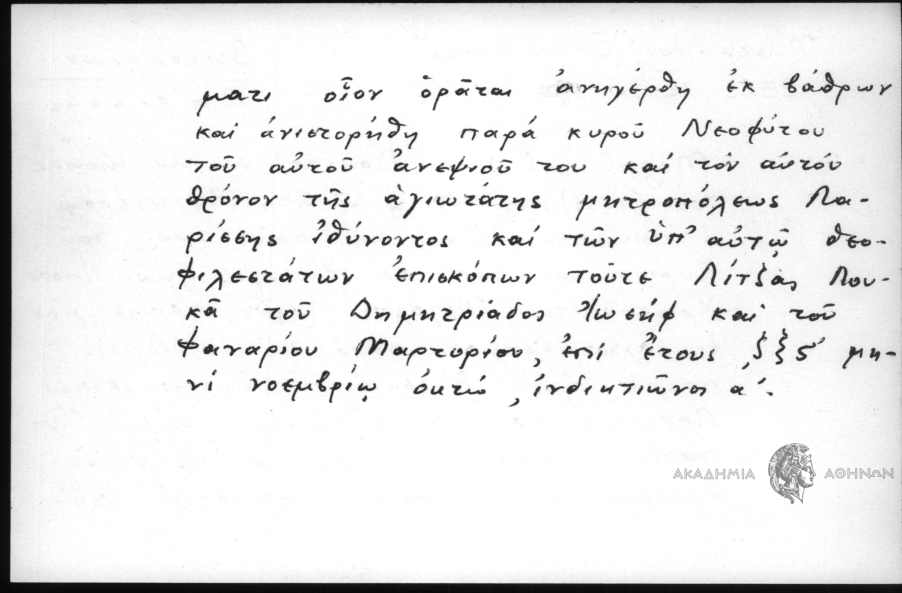 ματι οἷον ὁρᾶται ἀνηγέρθη ἐκ βάθρων
καί ἀνιστορήθη παρά κυροῦ Νεοφύτου
τοῦ αὐτοῦ ἀνεψιοῦ του καί τόν αὐτόν
θρόνον τῆς ἁγιωτάτης μητροπόλεως Λα-
ρίσσης ἰθύνοντος καί τῶν ὑπ' αὐτῷ θεο-
φιλεστάτων ἐπισκόπων τοῦτε Λίτζας Λου-
κᾶ τοῦ Δημητριάδος Ἰωσήφ καί τοῦ
Φαναρίου Μαρτυρίου, ἐπί ἔτους ͵ζξς' μη-
νί νοεμβρίῳ ὀκτώ, ἰνδικτιῶνος α'.
ΑΚΑΔΗΜΙΑ ΑΘΗΝΩΝ